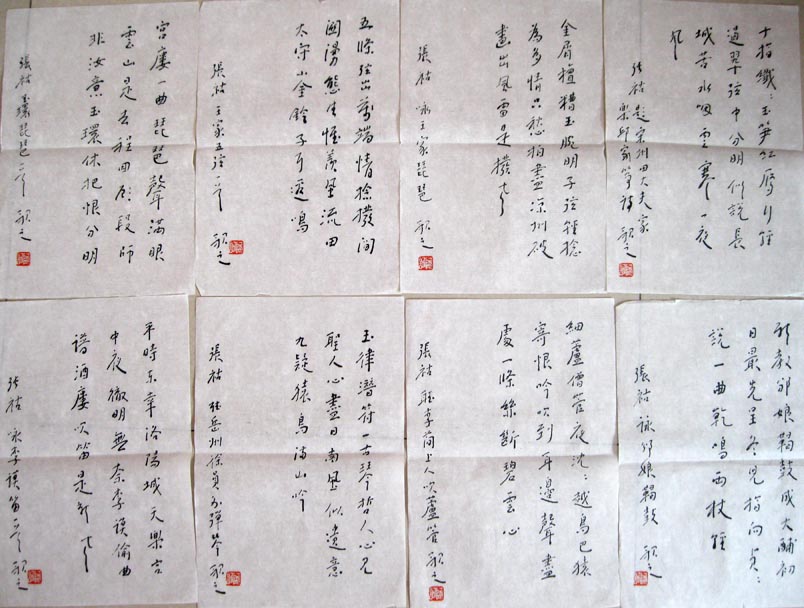 十指纖〻玉笋紅雁行輕
過翠弦中分明似說長
城苦水咽雲寒一夜
風
張祜 題宋州田大夫家
樂邱家箏詩
金屑檀槽玉腕明子弦輕捻
為多情只愁拍盡涼州破
畫出風雷是撥聲
張祜 詠王家琵琶
五條弦出萬端情捻撥間
關漫態生惟羨風流田
太守小金鈴子耳邊鳴
張祜 王家五弦 一首
宮樓一曲琵琶聲滿眼
雲山是去程回顧段師
非汝意玉環休把恨分明
張祜 玉環琵琶 一首
新教邠娘羯鼓成大酺初
日最先呈冬兒指向貞〻
說一曲乾鳴兩杖輕
張祜 詠邠娘羯鼓
細蘆僧管夜沈〻越鳥巴猿
寄恨吟吹到耳邊聲盡
處一條絲斷碧雲心
張祜 聽李簡上人吹蘆管
玉律潛符一古琴哲人心見
聖人心盡日南風似遺意
九疑猿鳥滿山吟
張祜 聽岳州徐員外彈琴
平時東幸洛陽城天樂宮
中夜徹明無奈李謨偷曲
譜酒樓吹笛是新聲
張祜 詠李謨笛 一首